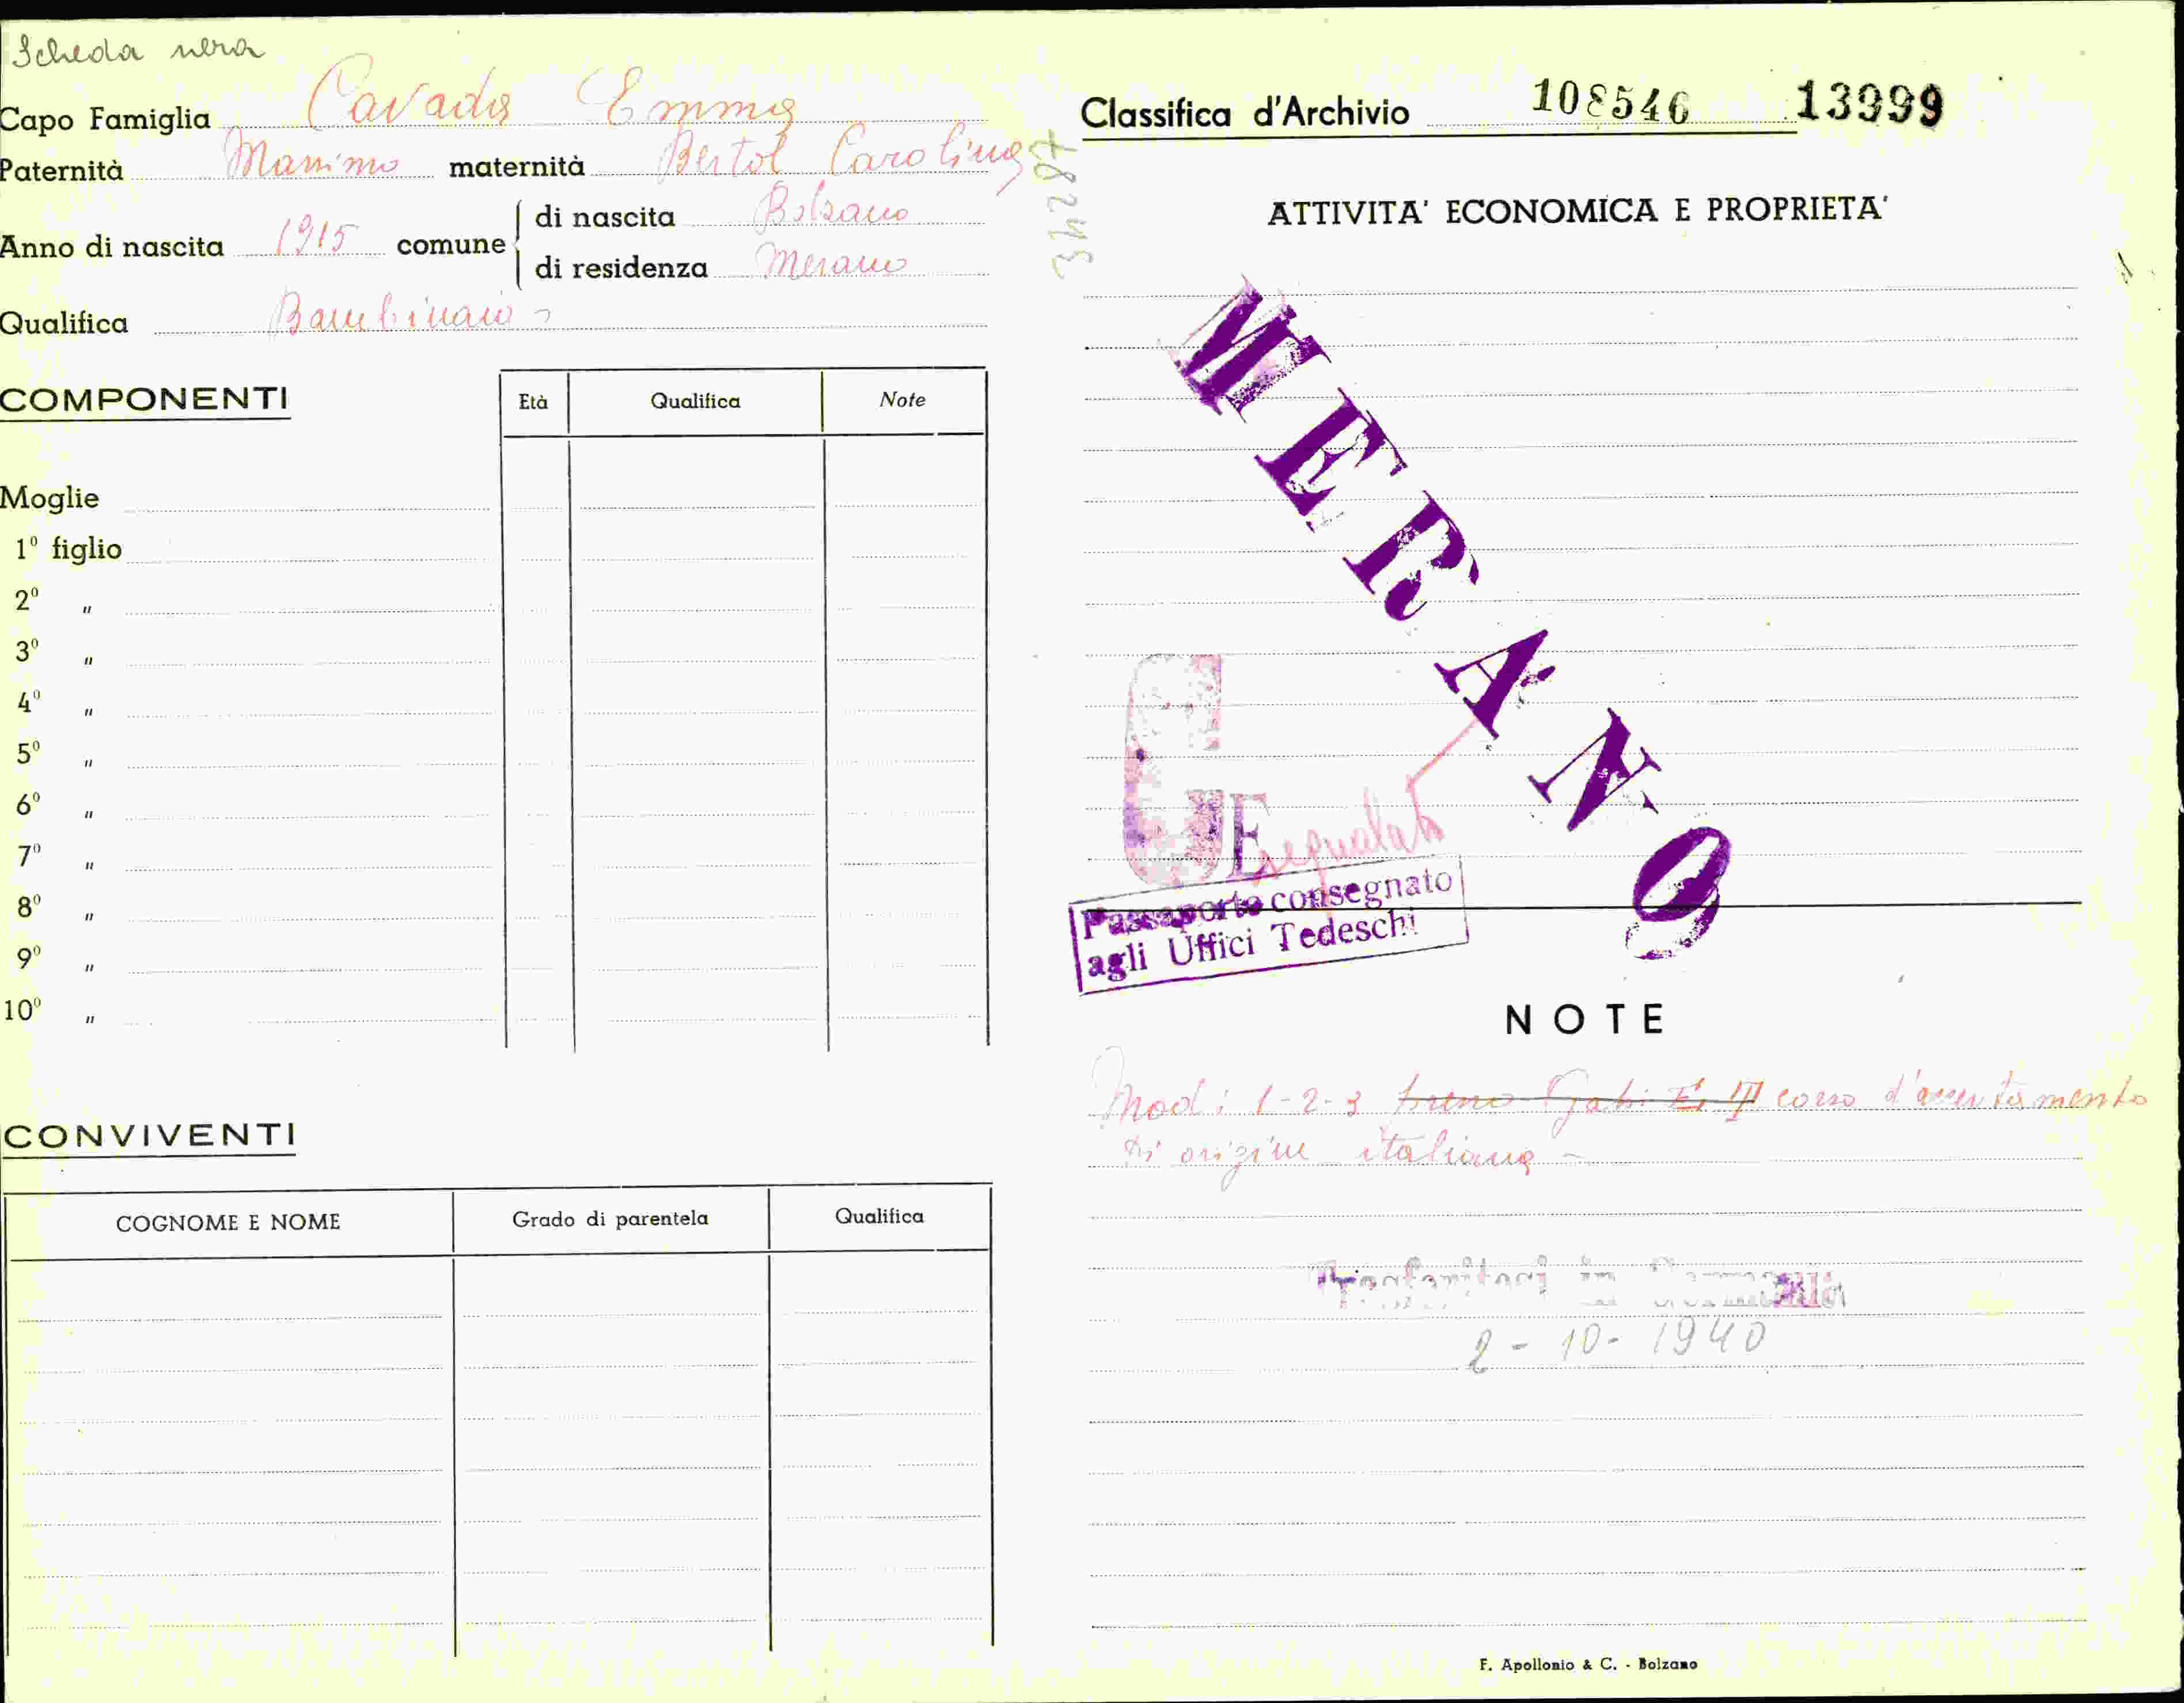 Scheda nera
Capo Famiglia Cavada Emma
Paternità Massimo maternità Bertol Carolina
Anno di nascita 1915 comune di nascita Bolzano
di residenza Merano
Qualifica Bambinaia -
COMPONENTI
Età Qualifica Note
Moglie
1º figlio
2º "
3º "
4º "
5º "
6º "
7º "
8º "
9º "
10º "
CONVIVENTI
COGNOME E NOME Grado di parentela Qualifica
78243
Classifica d'Archivio 108546 13999
ATTIVITA' ECONOMICA E PROPRIETA'
MERANO
segnalato
Passaporto consegnato
agli Uffici Tedeschi
NOTE
Mod: 1-2-3 corso d'accertamento
di origine italiana -
Trasferitosi in Germania
2-10-1940
F. Apollonio & C. - Bolzano